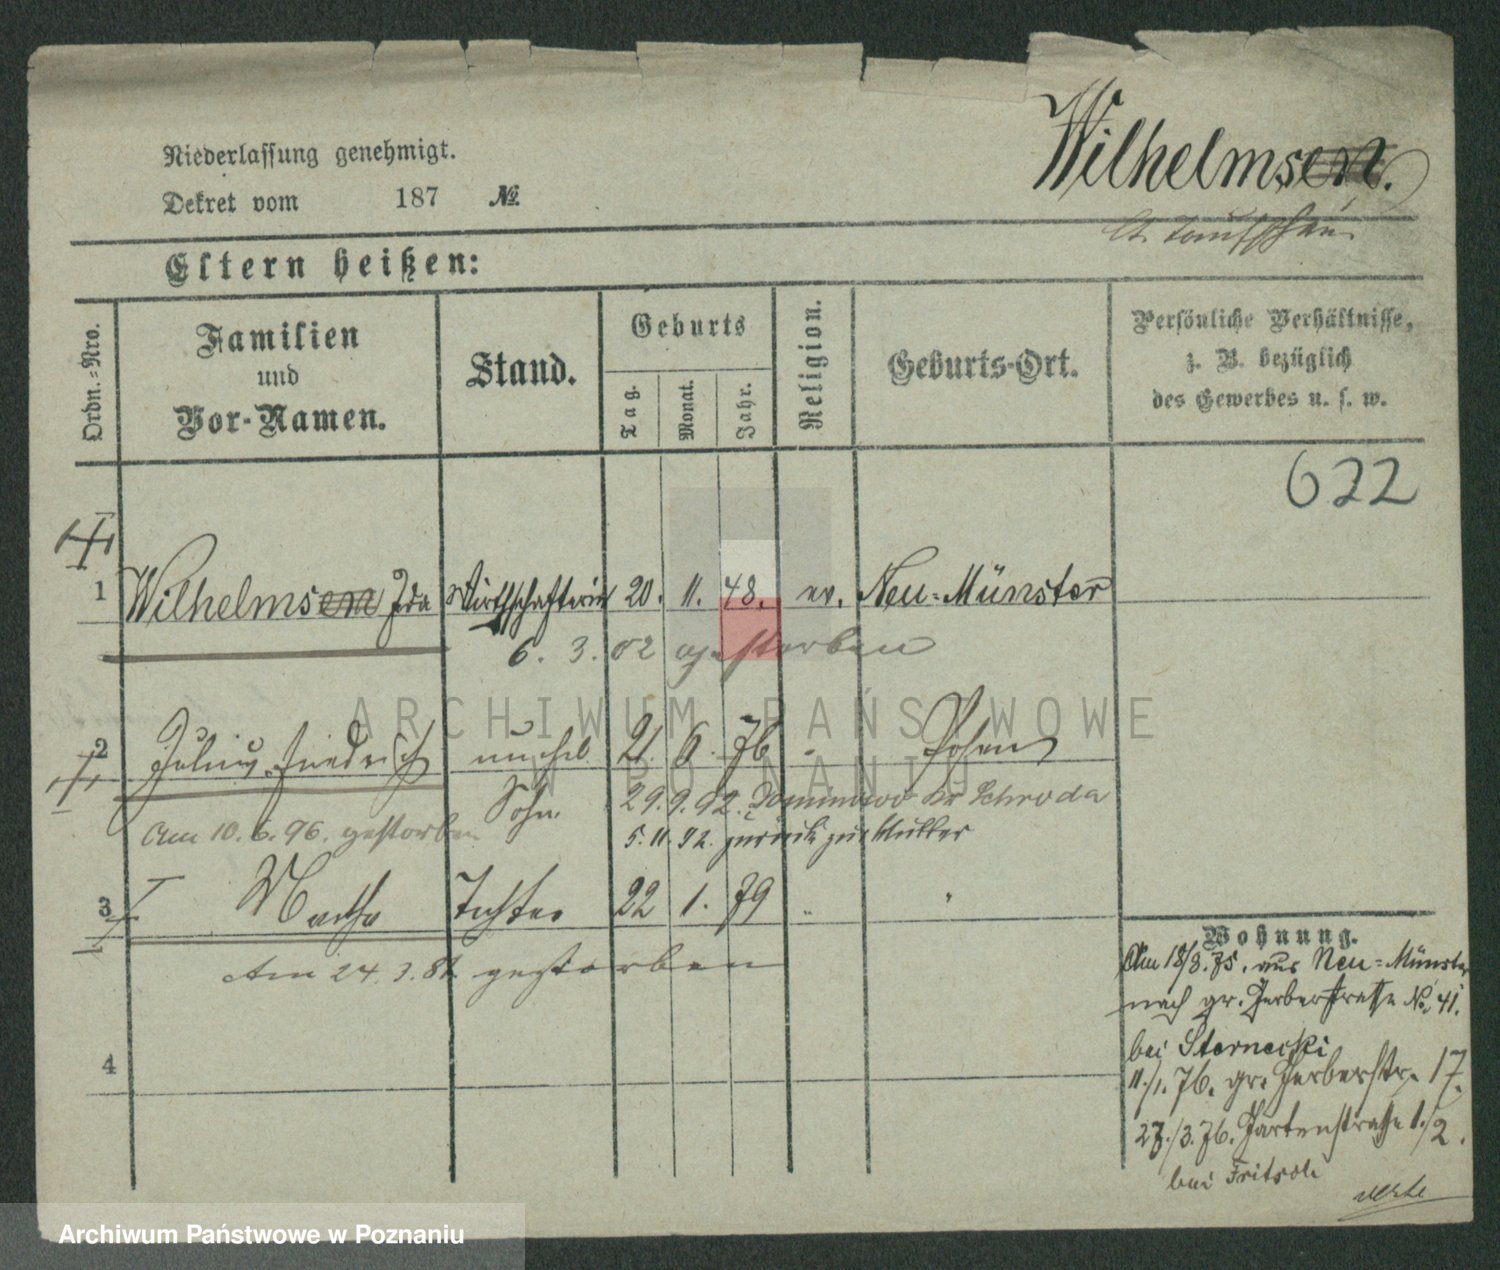 Niederlassung genehmigt.
Dekret vom 187 №
Wilhelmsen.
lt. Taufschein
Eltern heißen:
Ordn.=Nro.
Familien
und
Vor-Namen.
Stand.
Geburts
Tag.
Monat.
Jahr.
Religion.
Geburts-Ort.
Persönliche Verhältnisse,
z. B. bezüglich
des Gewerbes u. s. w.
622
1 Wilhelmsen Ida Wirthschafterin 20. 11. 48. ev. Neu=Münster
6. 3. 02 gestorben
2 Julius Friedrich unehel. 21. 6. 76 Posen
Sohn 29. 9. 92. Dominowo Kr Schroda
Am 10. 6. 96. gestorben 5. 11. 92. zurück zur Mutter
3 Martha Tochter 22 1. 79 "
Am 24. 3. 81. gestorben
4
Wohnung.
Am 18/8. 75. aus Neu=Münster
nach gr. Gerberstraße No. 41.
bei Sternecki
11./1. 76. gr. Gerberstr. 17.
27./3. 76. Gartenstraße 1./2.
bei Fritsch
ARCHIWUM PAŃSTWOWE
W POZNANIU
Archiwum Państwowe w Poznaniu